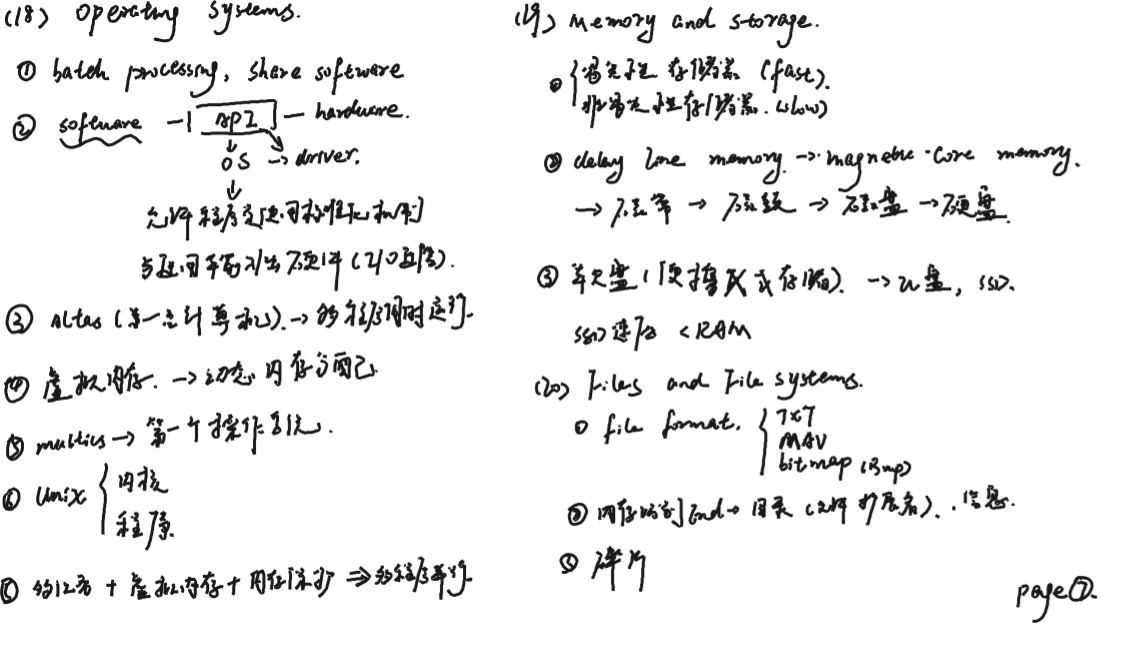 (18) Operating Systems.
① batch processing, share software
② software — API — hardware.
OS → driver.
允许程序员使用标准化机制
与
硬件 (I/O 
③ Atlas (第一台计算机) → 多程序同时运行.
④ 虚拟内存. → 动态内存分配
⑤ multics → 第一个操作系统.
⑥ Unix { 内核
程序
多任务 + 虚拟内存 + 内存保护 ⇒ 多程序并行
(19) Memory and storage.
① { 易失性存储器 (fast).
非易失性存储器. (slow)
② delay line memory. → magnetic-core memory.
→ 磁带 → 磁鼓 → 磁盘 → 硬盘.
③ → U盘, SSD.
SSD 速度 < RAM
(20) Files and File systems.
① file format. { TXT
WAV
bitmap (Bmp)
② End → 目录 (文件扩展名). 信息.
③ 碎片
page⑦.